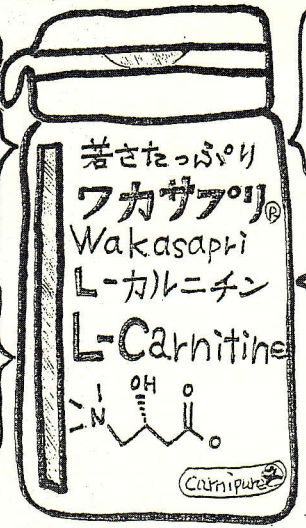 若さたっぷり
ワカサプリ®
Wakasapri
L-カルニチン
L-Carnitine
OH
O
N
O
Carnipure